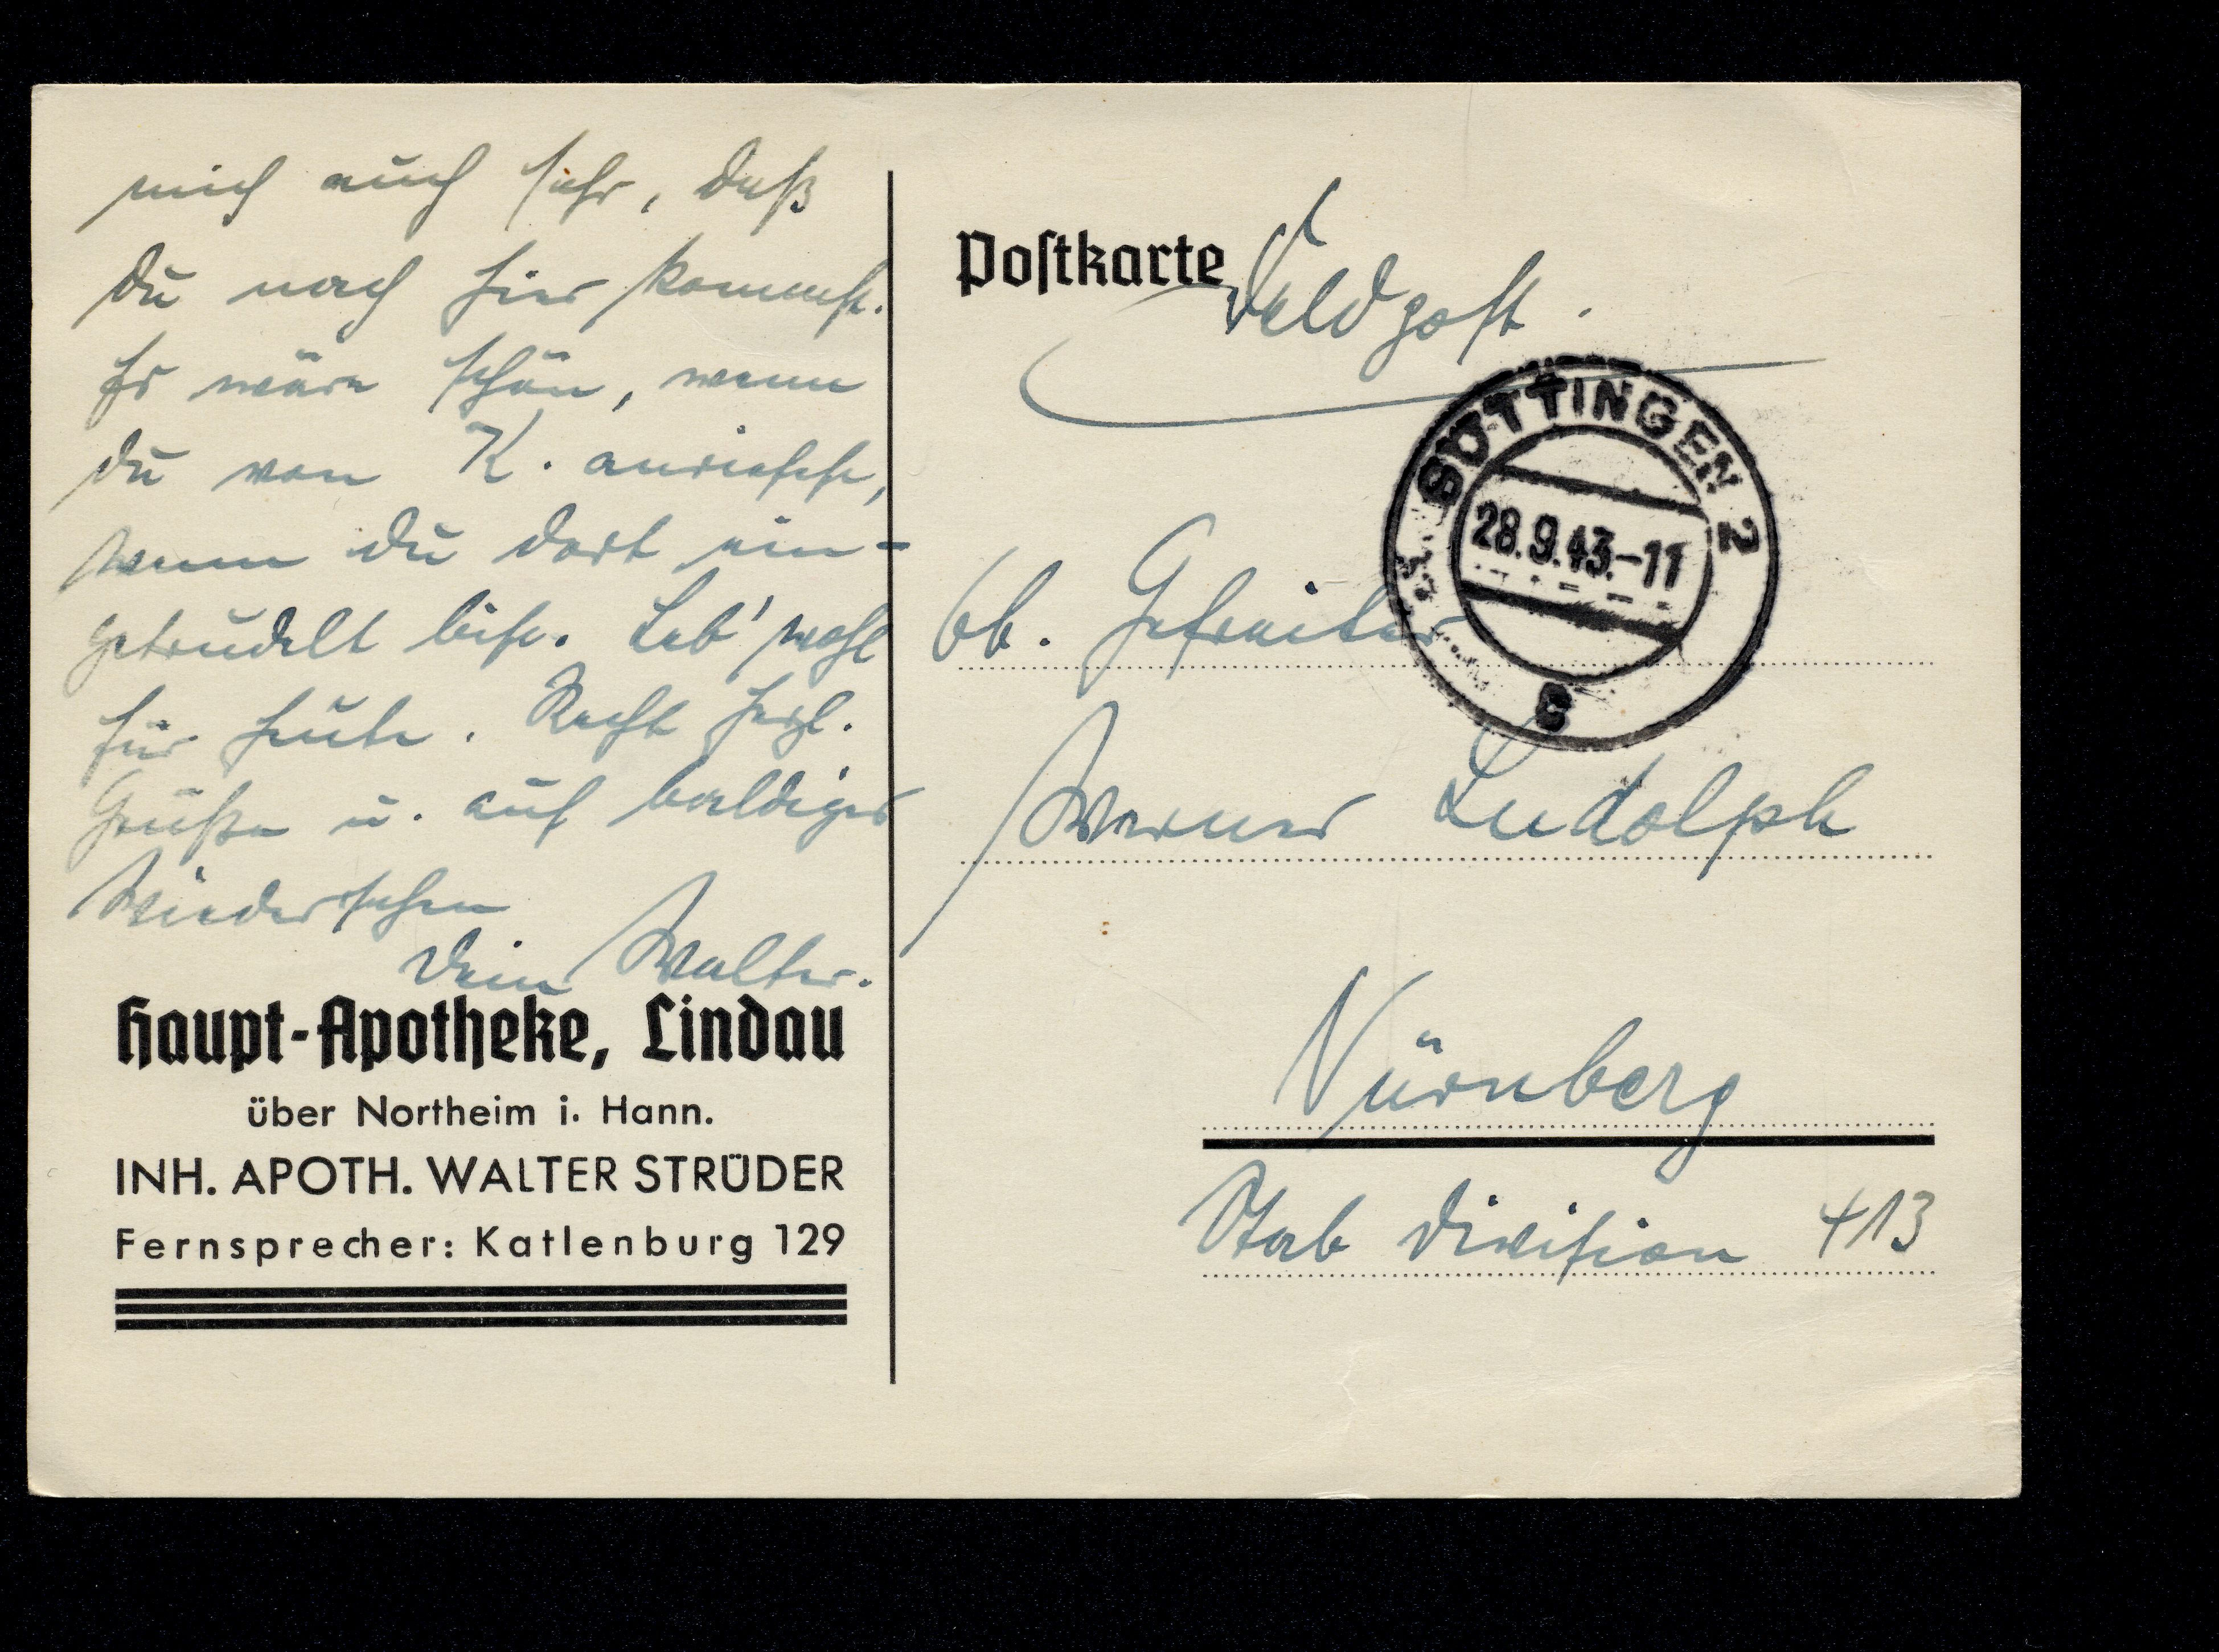 mich auch sehr, daß
Du nach hier kommst.
Es wäre schön, wenn
Du von K. anriefest,
wenn Du dort ein-
getrudelt bist. Leb' wohl
für heute. Recht herzl.
Grüße u. auf baldiges
Wiedersehen
Dein Walter.
Haupt-Apotheke, Lindau
über Northeim i. Hann.
INH. APOTH. WALTER STRÜDER
Fernsprecher: Katlenburg 129
Postkarte
Feldpost.
GÖTTINGEN 2
28.9.43.-11
Gefreiter
Werner Ludolph
Nürnberg
Stab Division 413